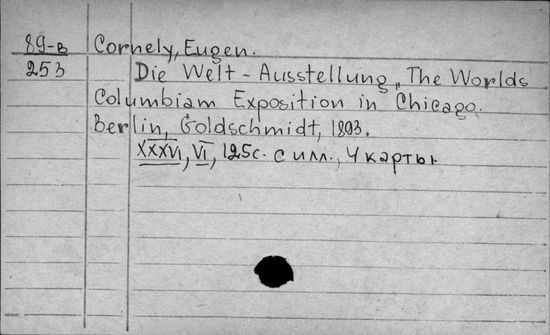 89-в Cornely, Eugen.
253 Die Welt-Ausstellung „The Worlds
Columbiam Exposition in Chicago.
Berlin, Goldschmidt, 1893.
XXXVI, VI, 125с. с илл., 4 карты.